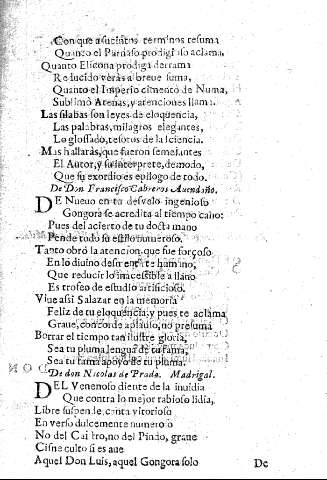 Con que a sucintos terminos resuma
Quanto el Parnaso prodigioso aclama,
Quanto Elicona prodiga derrama
Reducido veràs a breue suma,
Quanto el Imperio cimentò de Numa,
Sublimò Atenas, y atenciones llama.
Las silabas son leyes de eloquencia,
Las palabras, milagros elegantes,
Lo glossado, tesoros de la sciencia.
Mas hallaràs, que fueron semejantes
El Autor, y su interprete, de modo,
Que su exordio es epilogo de todo.
De Don Francisco Cabreros Auendaño.
DE Nueuo en tu desvelo ingenioso
Gongora se acredita al tiempo cano:
Pues del acierto de tu docta mano
Pende todo su estilo numeroso.
Tanto obrò la atencion, que fue forçoso
En lo diuino desmentirte humano,
Que reducir lo inacessible a llano
Es trofeo de estudio artificioso.
Viue assi Salazar en la memoria
Feliz de tu eloquencia, y pues te aclama
Graue, concorde aplauso, no presuma
Borrar el tiempo tan ilustre gloria,
Sea tu pluma lengua de tu fama,
Sea tu fama apoyo de tu pluma.
De don Nicolas de Prada. Madrigal.
DEL Venenoso diente de la inuidia
Que contra lo mejor rabioso lidia,
Libre suspende, canta vitorioso
En verso dulcemente numeroso
No del Caistro, no del Pindo, graue
Cisne culto si es aue
Aquel Don Luis, aquel Gongora solo
De